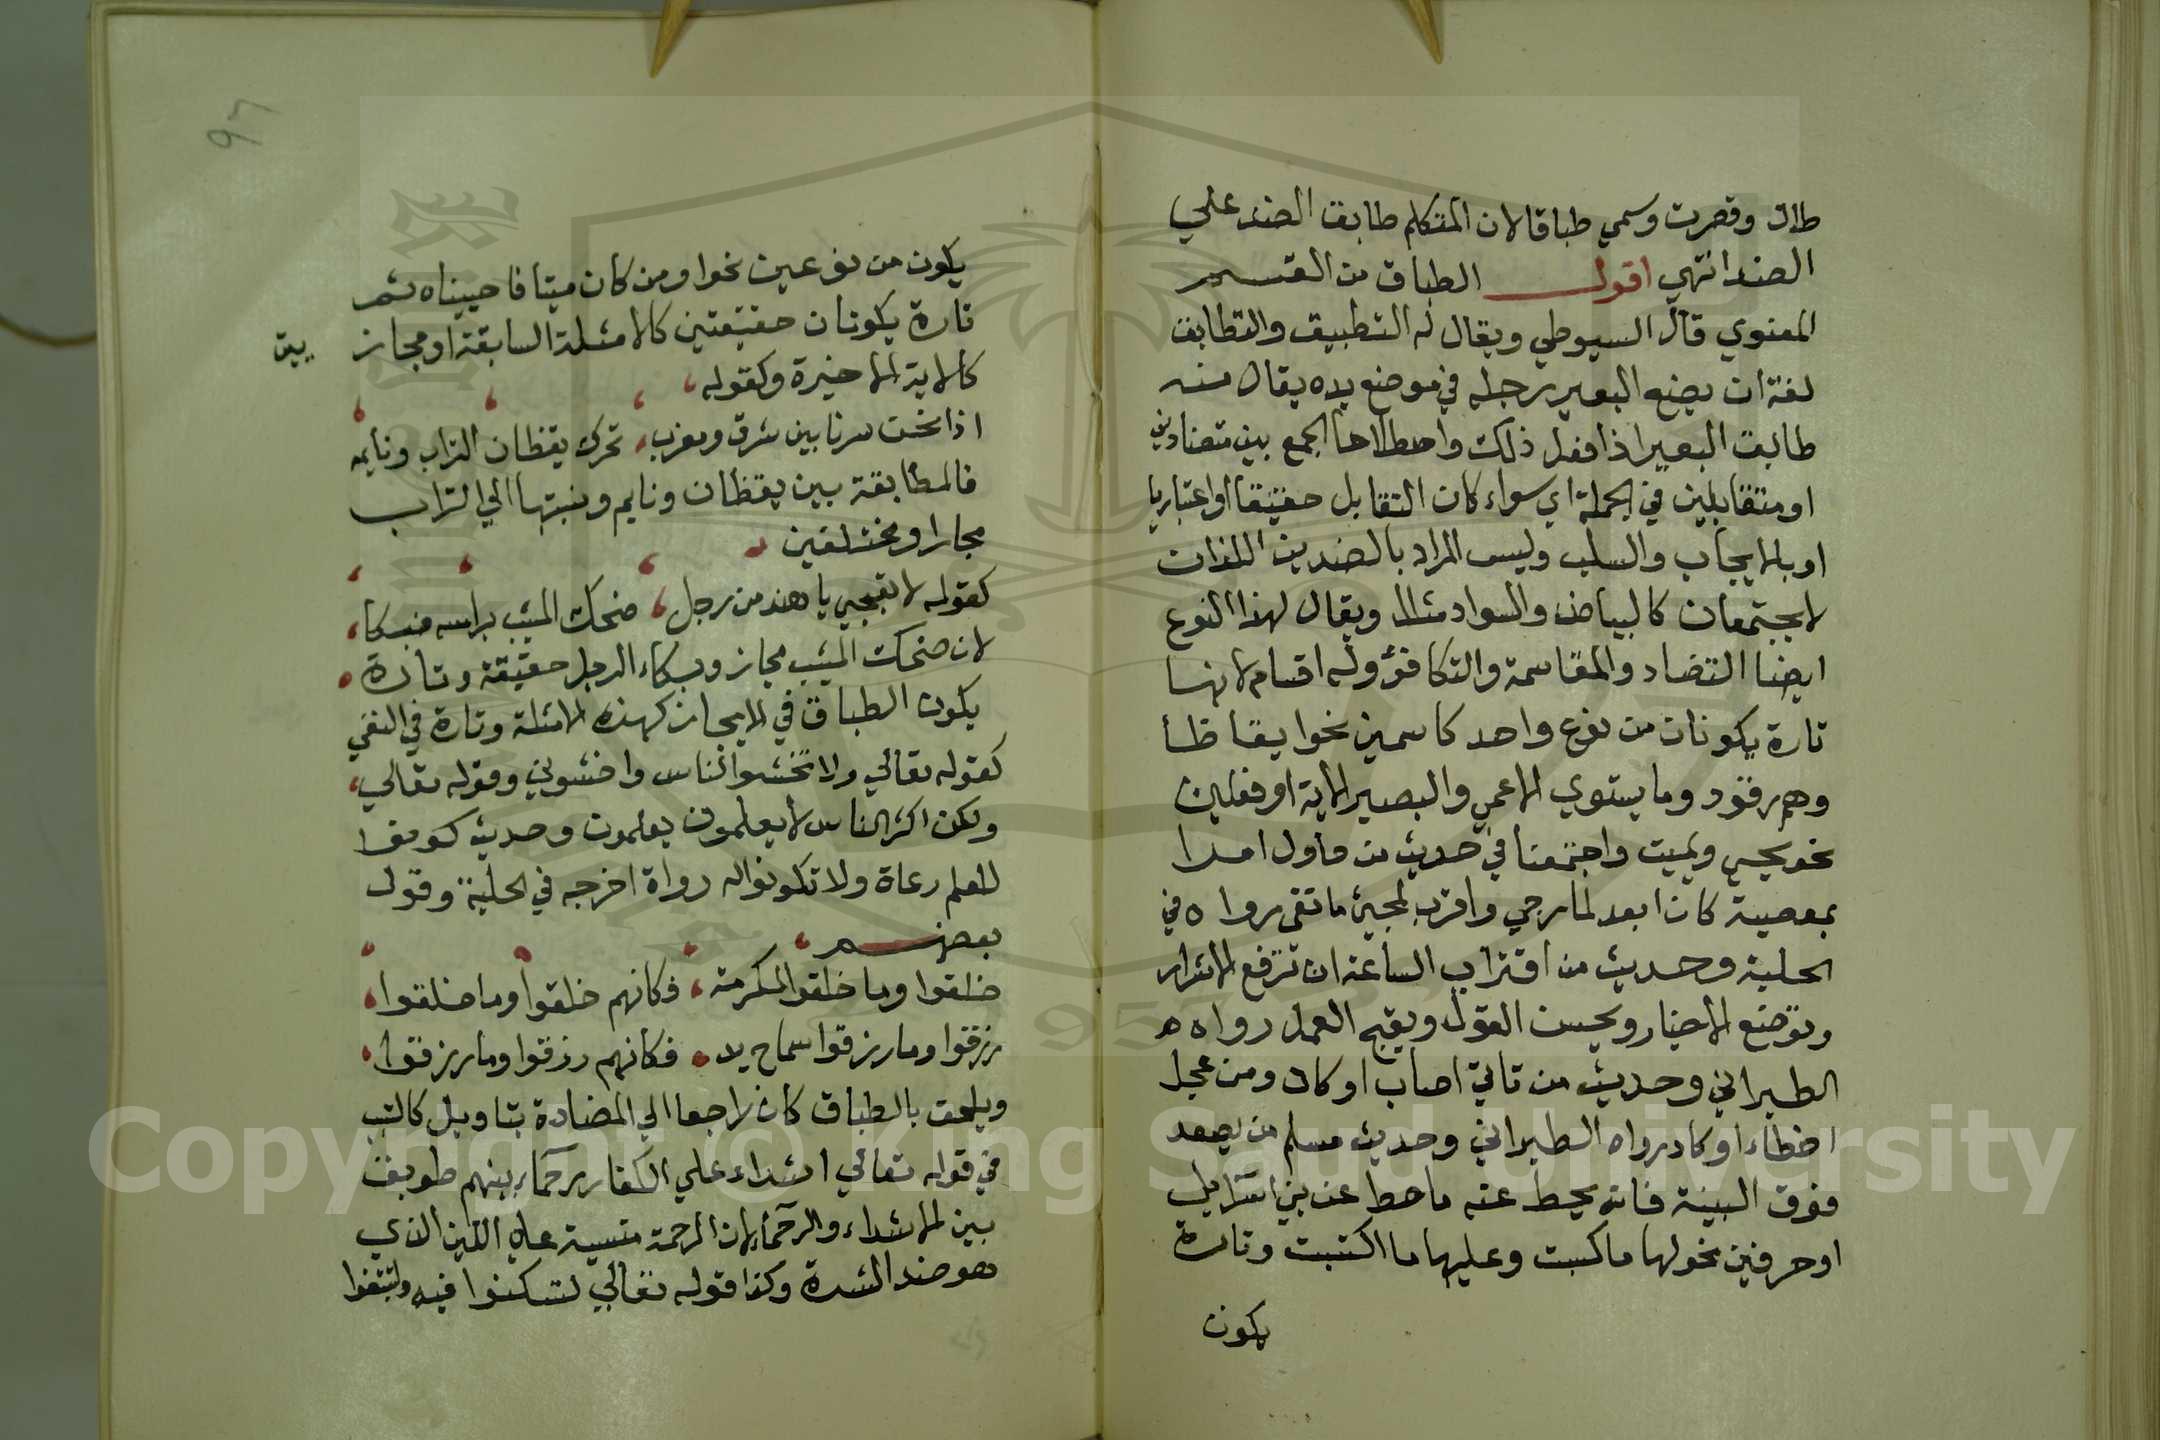 طالت وقصرت وسمي طباقا لان المتكلم طابق الضد علي
الضد انتهي اقول الطباق من القسم
المعنوي قال السيوطي ويقال له التطبيق والتطابق
لغة ان يضع البعير رجله في موضع يده يقال منه
طابق البعير اذا فعل ذلك واصطلاحا الجمع بين متضادين
او متقابلين في الجملة اي سواء كان التقابل حقيقا او اعتباريا
او بالايجاب والسلب وليس المراد بالضدين اللذان
لا يجتمعان كالبياض والسواد مثلا ويقال لهذا النوع
ايضا التضاد والمقاسمة والتكافؤ وله اقسام لانهما
تارة يكونان من نوع واحد كاسمين نحو ايقاظا
وهم رقود وما يستوي الاعمي والبصير الاية او فعلين
نحو يحيي ويميت واجتمعنا في حديث من حاول امرا
بمعصية كان ابعد لما رجي واقرب لمجيئ ما تقي رواه في
الحلية وحديث من اقتراب الساعة ان ترفع الاشرار
وتوضع الاخيار ويحسن القول ويقبح العمل رواه ه
الطبراني وحديث من تاني اصاب او كاد ومن عجل
اخطاء او كاد رواه الطبراني وحديث مسلم من يصعد
فوق البينة فانه يحط عنه ما حط عن بني اسرايل
او حرفين نحو لها ما كسبت وعليها ما اكتسبت وتارة
يكون
٩٦
يكون من نوعين نحو او من كان ميتا فاحييناه ثم
تارة يكونان حقيقتين كالامثلة السابقة او مجاز
يين
كالاية الاخيرة وكقوله
اذا نحن سرنا بين شرق ومغرب تحرك يقظان التراب ونايمه
فالمطابقة بين يقظان ونايم ونسبتها الي التراب
مجازا ومختلفين
كقوله لا تعجبي يا هند من رجل ضحك المشيب براسه فبكا
لان ضحك المشيب مجاز وبكاء الرجل حقيقة وتارة
يكون الطباق في الايجاز كهذه الامثلة وتارة في النفي
كقوله تعالي ولا تخشوا الناس واخشوني وقوله تعالي
ولكن اكثر الناس لا يعلمون يعلمون وحديث كونوا
للعلم رعاة ولا تكونوا له رواة اخرجه في الحلية وقول
بعضهم
خلقوا وما خلقوا لمكرمة فكانهم خلقوا وما خلقوا
رزقوا وما رزقوا سماح يد فكانهم رزقوا وما رزقوا
ويلحق بالطباق كان راجعا الي المضادة بتاويل كالتب
في قوله تعالي اشداء علي الكفار رحماء بينهم طوبق
بين الاشداء والرحماء لان الرحمة متسببة عن اللين الذي
هو ضد الشدة وكذا قوله تعالي لتسكنوا فيه ولتبتغوا
Copyright © King Saud University